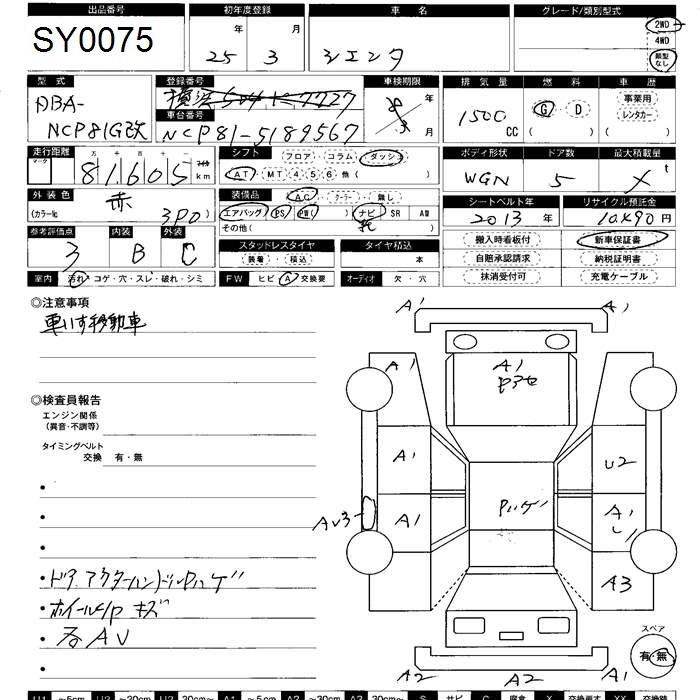 出品番号 初年度登録 車名 グレード/類別型式
SY0075 25年 3月 シエンタ 2WD
4WD
類型なし
型式 登録番号 車検期限 排気量 燃料 車歴
DBA- 年 1500 G・D 事業用
NCP81G改 車台番号 NCP81-5189567 月 CC ( ) レンタカー ( )
走行距離 シフト フロア・コラム・ダッシュ ボディ形状 ドア数 最大積載量
マーク 万 千 百 十 一 マイル
81605 km AT・MT 4 5 6 他( ) WGN 5 X t
外装色 赤 装備品 AC・クーラー・無し シートベルト年 リサイクル預託金
(カラーNo. 3P0) エアバッグ PS PW( ) ナビ SR AW 2013年 10490円
参考評価点 内装 外装 その他( ) 搬入時看板付 新車保証書
3 B C スタッドレスタイヤ タイヤ積込 自賠承認請求 納税証明書
装着・積込 本 抹消受付可 充電ケーブル
室内 汚れ・コゲ・穴・スレ・破れ・シミ FW ヒビ・A・交換要 オーディオ 欠・穴
◎注意事項
車いす移動車
A1 A1
A1 A1 A1
◎検査員報告
エンジン関係
(異音・不調等)
タイミングベルト
交換 有・無
A1 U2
AU3 A1 A1
A3
・ホイールc/p キズ
・各AU
スペア
有・無
A2 A2 A2